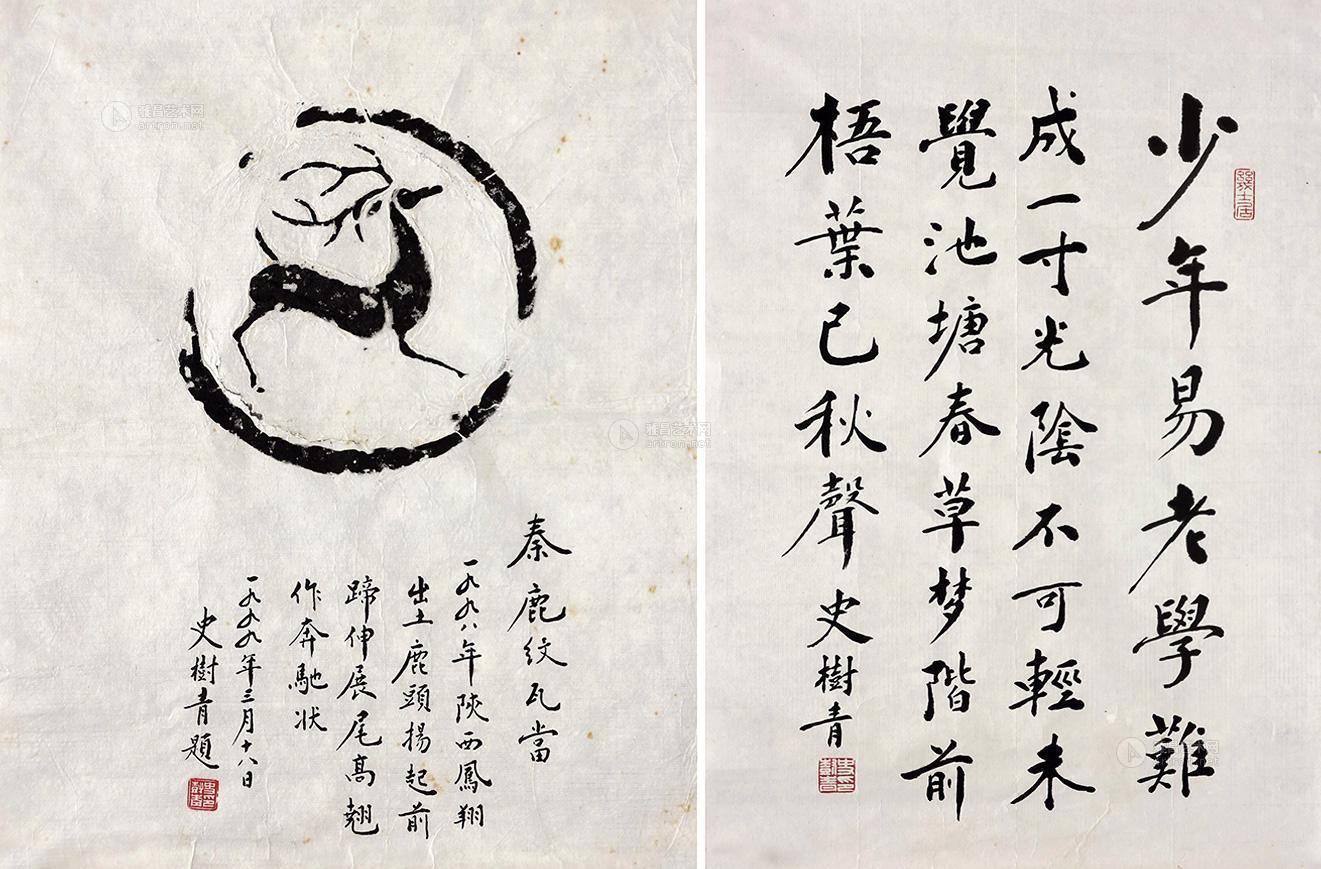 秦鹿紋瓦當
一九九八年陝西鳳翔
出土鹿頭揚起前
蹄伸展尾高翹
作奔馳状
一九九九年三月十八日
史樹青題
少年易老學難
成一寸光陰不可輕未
覺池塘春草梦階前
梧葉已秋聲 史樹青
雅昌艺术网
artron.net
雅昌艺术网
artron.net